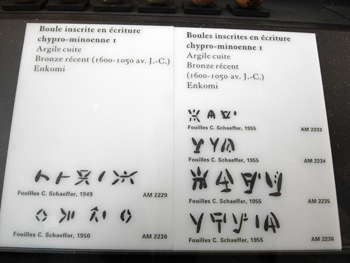 Boule inscrite en écriture
chypro-minoenne 1
Argile cuite
Bronze récent (1600-1050 av. J.-C.)
Enkomi
Fouilles C. Schaeffer, 1949 AM 2229
Fouilles C. Schaeffer, 1950 AM 2230
Boules inscrites en écriture
chypro-minoenne 1
Argile cuite
Bronze récent
(1600-1050 av. J.-C.)
Enkomi
Fouilles C. Schaeffer, 1955 AM 2233
Fouilles C. Schaeffer, 1955 AM 2234
Fouilles C. Schaeffer, 1955 AM 2235
Fouilles C. Schaeffer, 1955 AM 2236